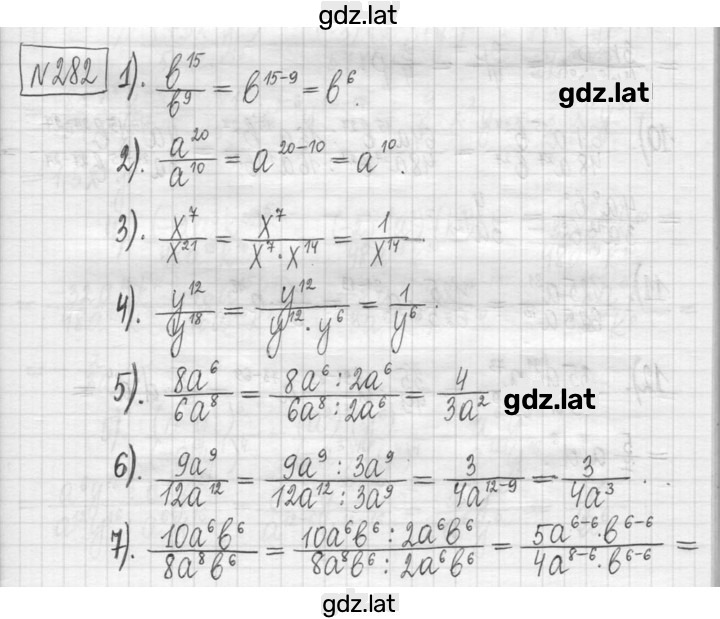 gdz.lat
№282 1). в^15/в^9 = в^(15-9) = в^6. gdz.lat
2). a^20/a^10 = a^(20-10) = a^10.
3). x^7/x^21 = x^7/(x^7·x^14) = 1/x^14.
4). y^12/y^18 = y^12/(y^12·y^6) = 1/y^6.
5). 8a^6/6a^8 = (8a^6 : 2a^6)/(6a^8 : 2a^6) = 4/3a^2 gdz.lat
6). 9a^9/12a^12 = (9a^9 : 3a^9)/(12a^12 : 3a^9) = 3/4a^(12-9) = 3/4a^3.
7). 10a^6в^6/8a^8в^6 = (10a^6в^6 : 2a^6в^6)/(8a^8в^6 : 2a^6в^6) = (5a^(6-6)·в^(6-6))/(4a^(8-6)·в^(6-6)) =
gdz.lat